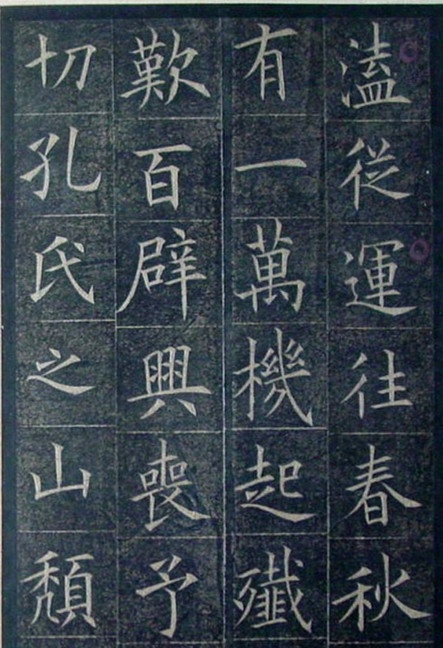 溘從運往春秋
有一萬機起殲
歎百辟興喪予
切孔氏之山頹